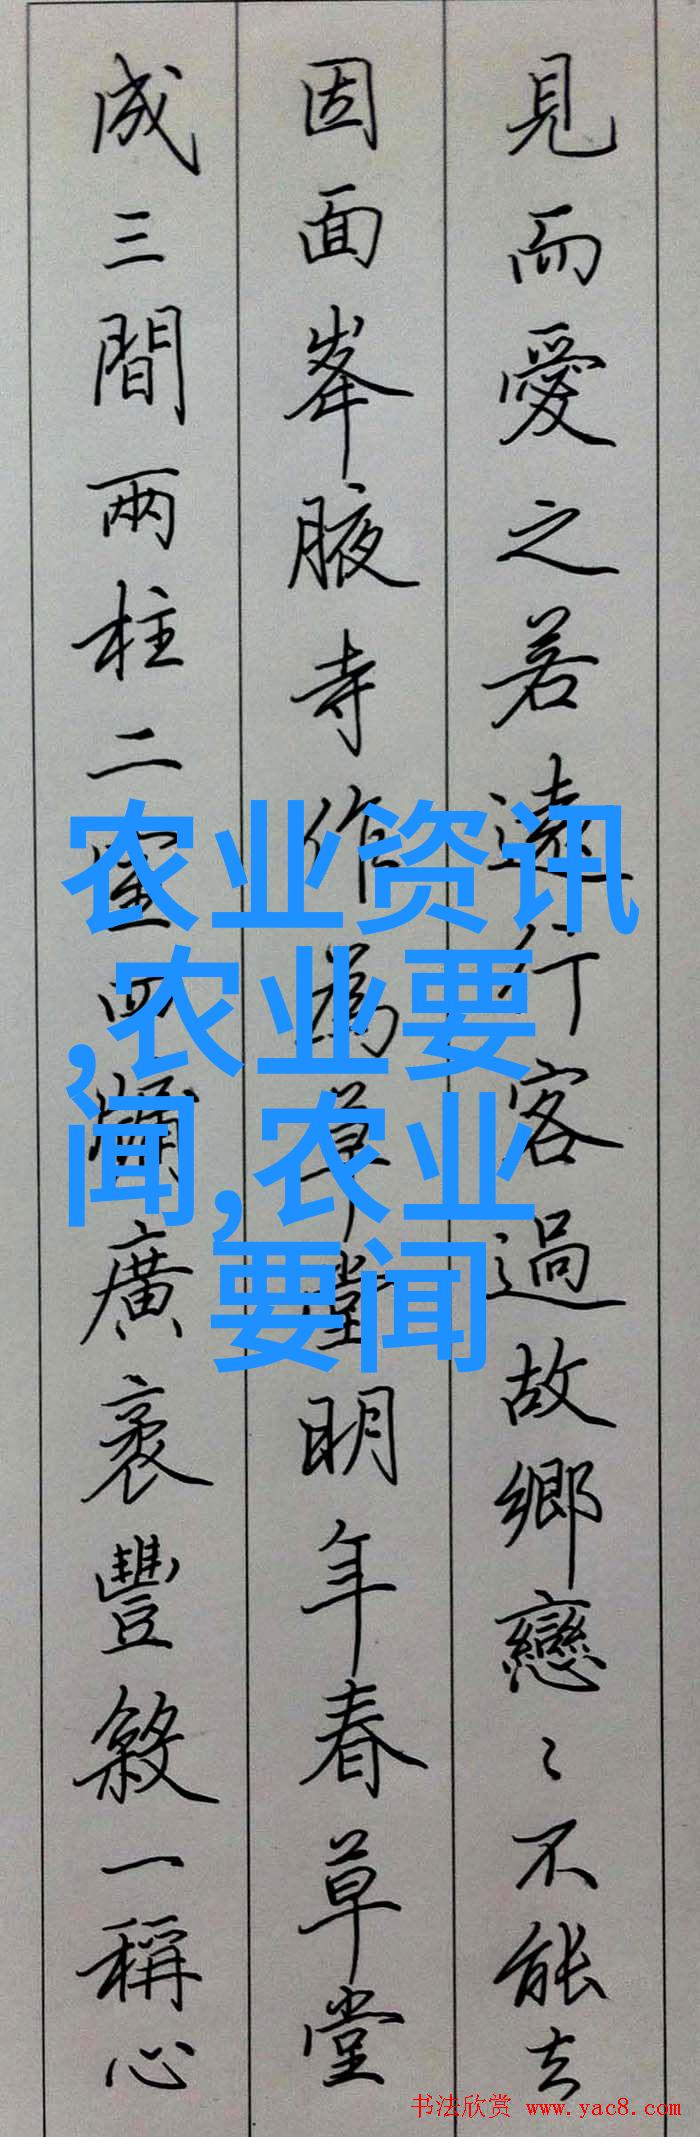 見而愛之若遠行客過故鄉戀〻不能去
因面峯腋寺作為草堂明年春草堂
成三間兩柱二室四牖廣袤豐殺一稱心
农业资讯
,农业要
闻,农业
要闻
书法欣赏 www.yac8.com